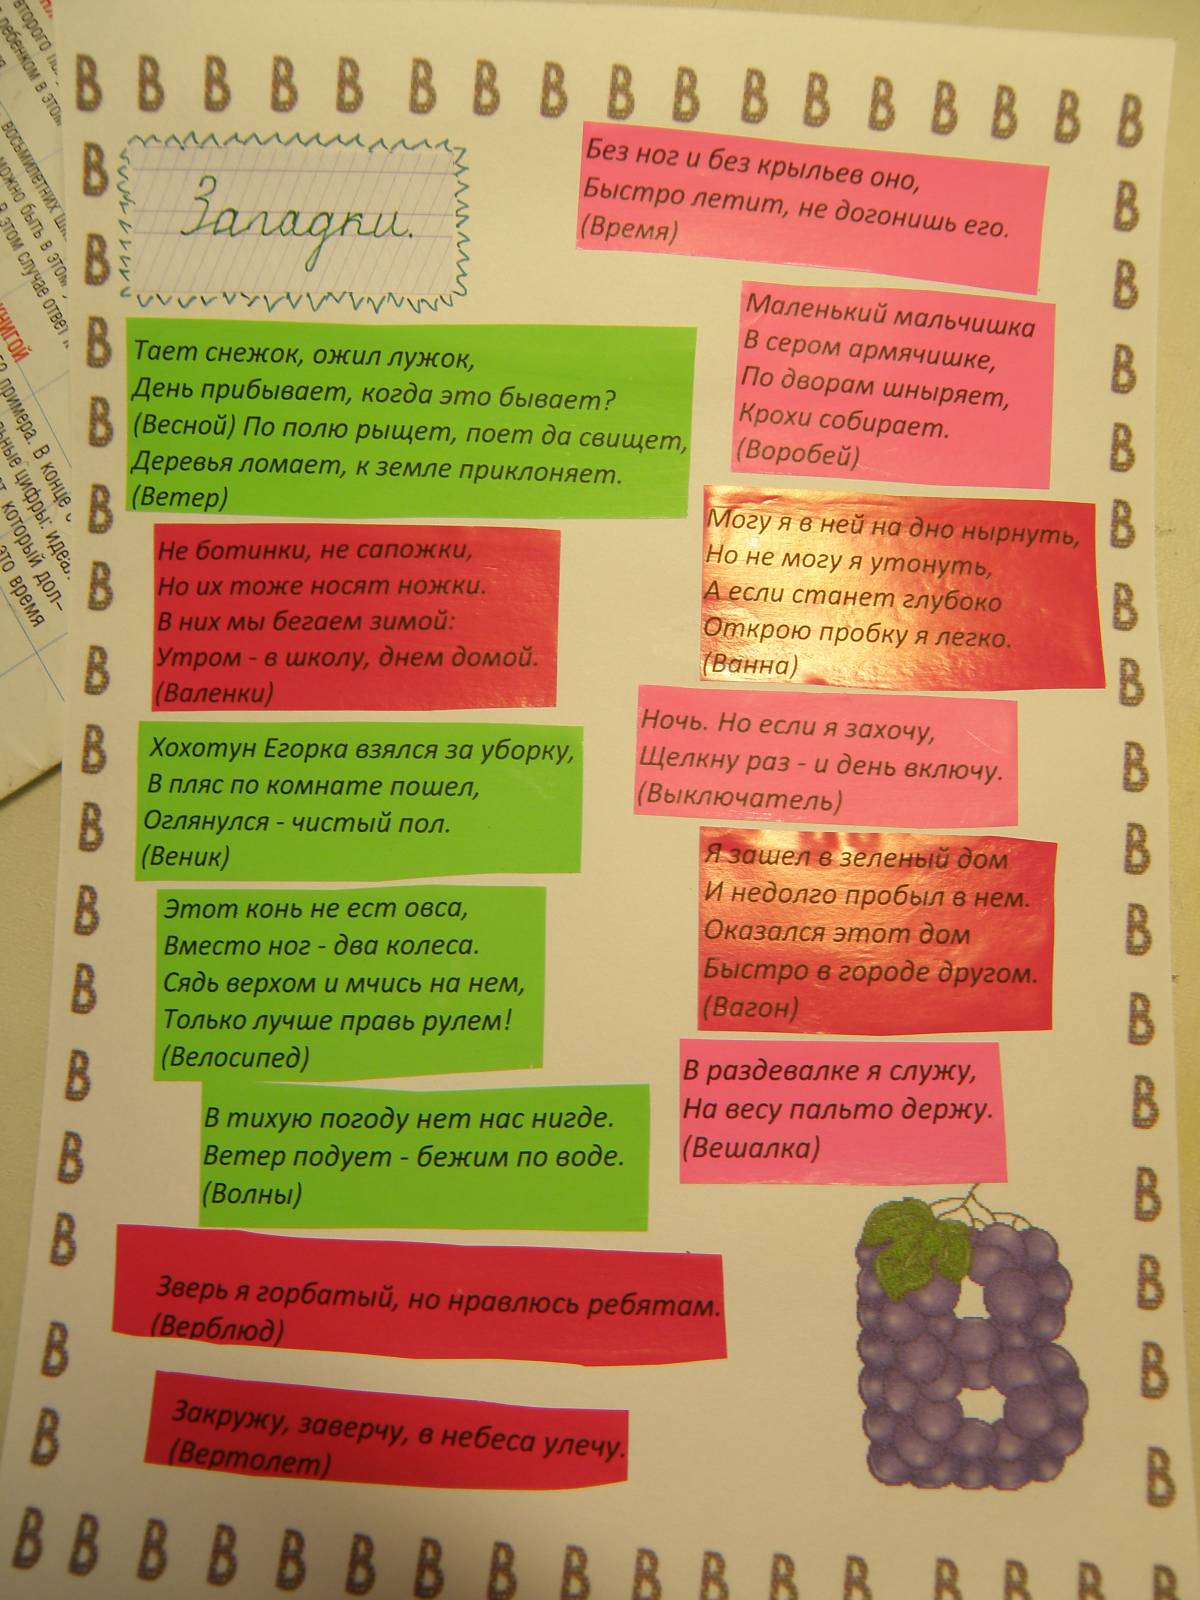 Загадки.
Без ног и без крыльев оно,
Быстро летит, не догонишь его.
(Время)
Маленький мальчишка
В сером армячишке,
По дворам шныряет,
Крохи собирает.
(Воробей)
Тает снежок, ожил лужок,
День прибывает, когда это бывает?
(Весной) По полю рыщет, поет да свищет,
Деревья ломает, к земле приклоняет.
(Ветер)
Могу я в ней на дно нырнуть,
Но не могу я утонуть,
А если станет глубоко
Открою пробку я легко.
(Ванна)
Не ботинки, не сапожки,
Но их тоже носят ножки.
В них мы бегаем зимой:
Утром - в школу, днем домой.
(Валенки)
Ночь. Но если я захочу,
Щелкну раз - и день включу.
(Выключатель)
Хохотун Егорка взялся за уборку,
В пляс по комнате пошел,
Оглянулся - чистый пол.
(Веник)
Я зашел в зеленый дом
И недолго пробыл в нем.
Оказался этот дом
Быстро в городе другом.
(Вагон)
Этот конь не ест овса,
Вместо ног - два колеса.
Сядь верхом и мчись на нем,
Только лучше правь рулем!
(Велосипед)
В раздевалке я служу,
На весу пальто держу.
(Вешалка)
В тихую погоду нет нас нигде.
Ветер подует - бежим по воде.
(Волны)
Зверь я горбатый, но нравлюсь ребятам.
(Верблюд)
Закружу, заверчу, в небеса улечу.
(Вертолет)